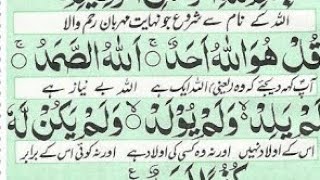 اللہ کے نام سے شروع جو نہایت مہربان رحم والا
قُلْ هُوَ اللّٰهُ اَحَدٌ ۚ اَللّٰهُ الصَّمَدُ ۚ
آپ کہہ دیجئے کہ وہ (یعنی) اللہ ایک ہے اللہ بے نیاز ہے
لَمْ يَلِدْ ۙ وَلَمْ يُوْلَدْ ۙ وَلَمْ يَكُنْ لَّهٗ
اس کے اولاد نہیں اور نہ وہ کسی کی اولاد ہے اور نہ کوئی اس کے برابر